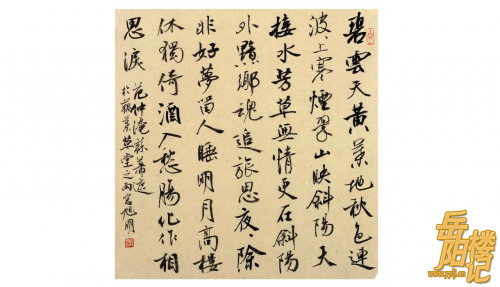 碧雲天黃葉地秋色連
波〻上寒煙翠山映斜陽天
接水芳草無情更在斜陽
外黯鄉魂追旅思夜〻除
非好夢留人睡明月高樓
休獨倚酒入愁腸化作相
思淚
范仲淹蘇幕遮
草堂之
旭明
岳阳楼记